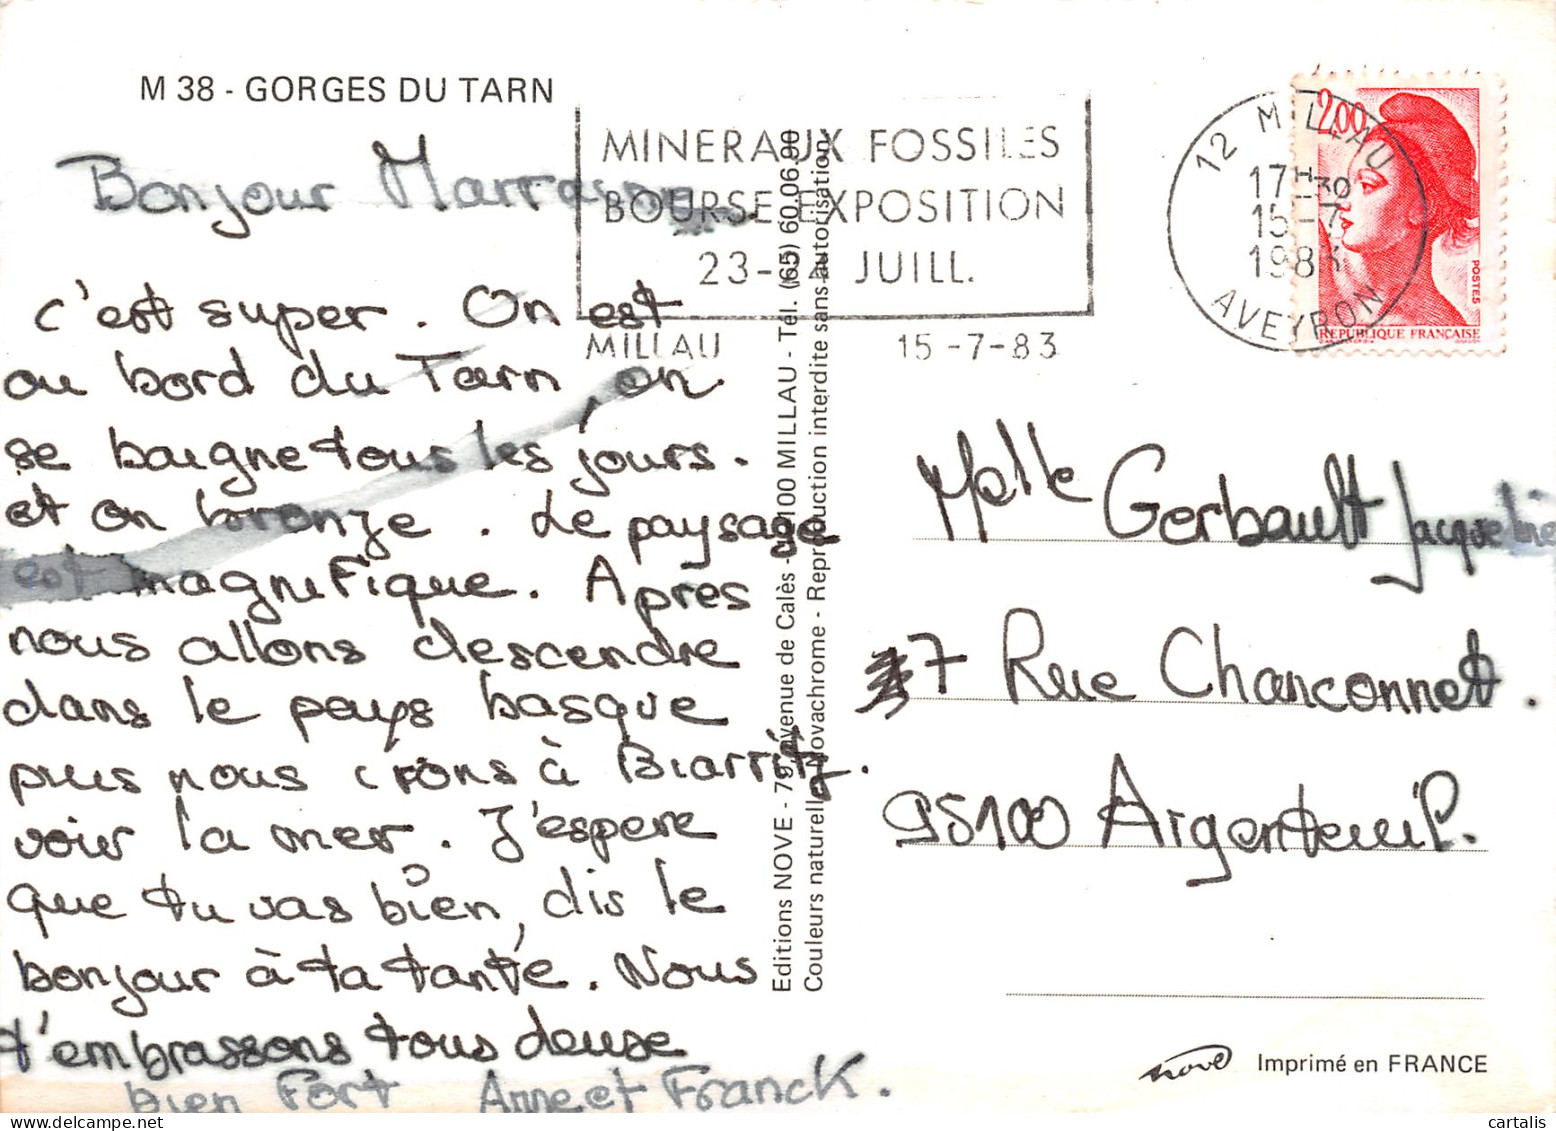 M 38 - GORGES DU TARN
Bonjour
c'est super. On est
au bord du Tarn, on
se baigne tous les jours.
et on bronze. Le paysage
est magnifique. Apres
nous allons descendre
dans le pays basque
puis nous irons à Biarritz.
voir la mer. J'espere
que tu vas bien, dis le
bonjour à ta tante. Nous
t'embrassons tous deuse
bien Fort Anne et Franck.
MINERAUX FOSSILES
BOURSE EXPOSITION
23-24 JUILL.
MILLAU 15-7-83
12 MILLAU
17H30
15-7
1983
AVEYRON
2,00
POSTES
REPUBLIQUE FRANÇAISE
Editions NOVE - 79, avenue de Calès - 12100 MILLAU - Tél. (65) 60.06.90
Couleurs naturelles Novachrome - Reproduction interdite sans autorisation
Melle Gerbault Jacqueline
7 Rue Charconnet.
95100 Argenteuil.
nove Imprimé en FRANCE
cartalis